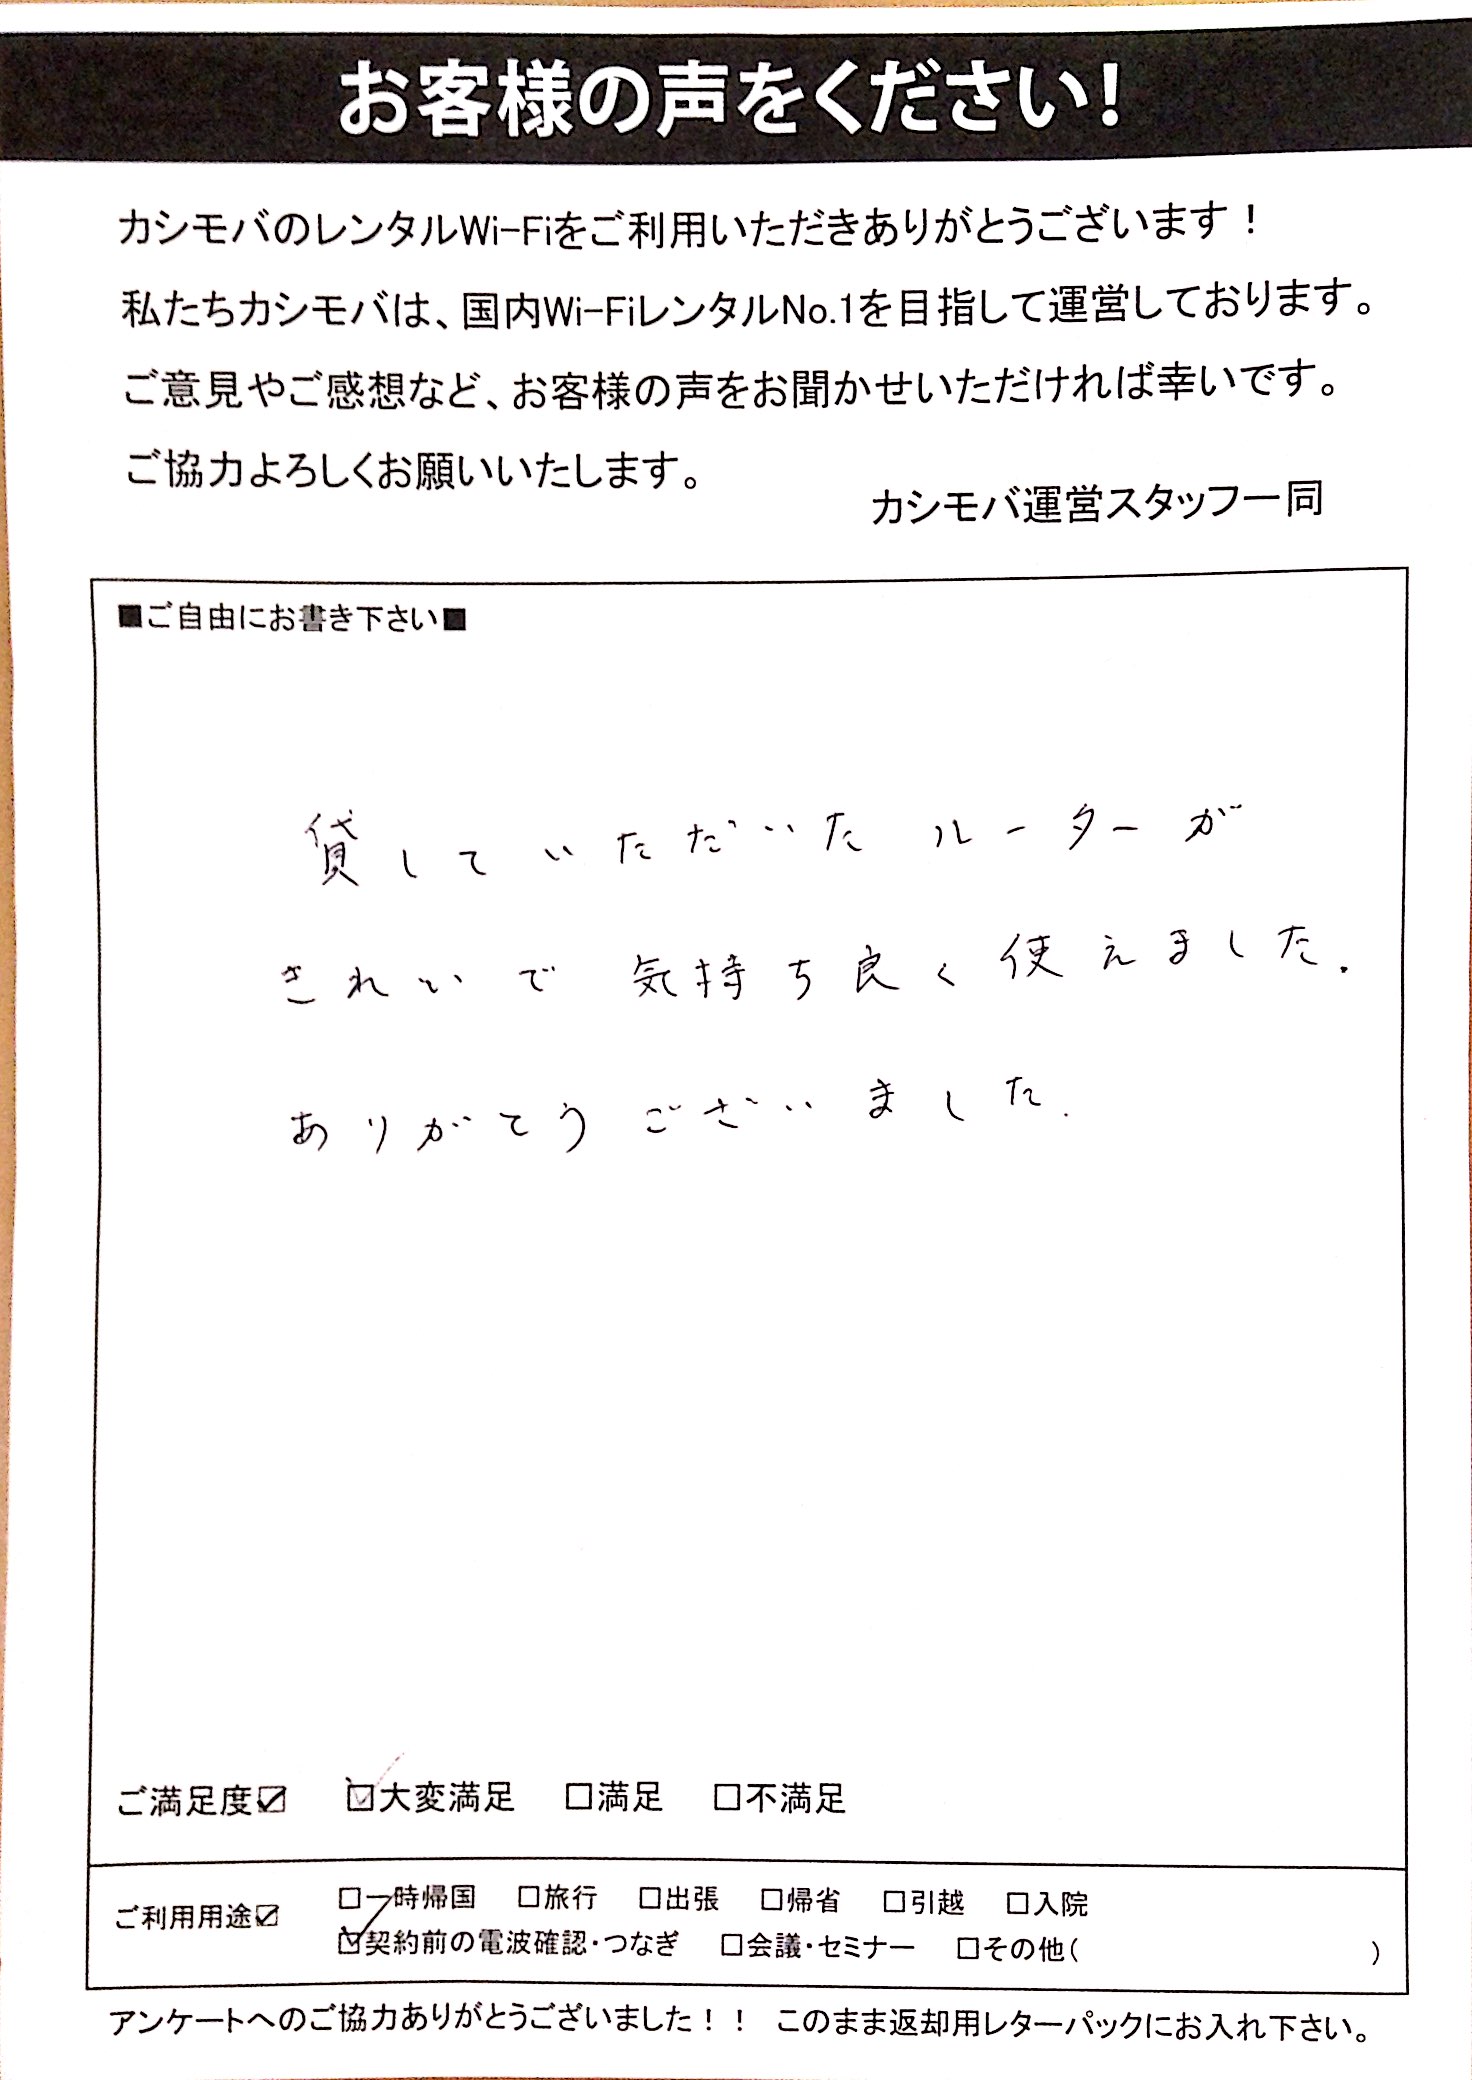 お客様の声をください!
カシモバのレンタルWi-Fiをご利用いただきありがとうございます！
私たちカシモバは、国内Wi-FiレンタルNo.1を目指して運営しております。
ご意見やご感想など、お客様の声をお聞かせいただければ幸いです。
ご協力よろしくお願いいたします。
カシモバ運営スタッフ一同
■ご自由にお書き下さい■
貸していただいたルーターが
きれいで気持ち良く使えました.
ありがとうございました.
ご満足度☑ ☑大変満足 □満足 □不満足
ご利用用途☑ □一時帰国 □旅行 □出張 □帰省 □引越 □入院
☑契約前の電波確認・つなぎ □会議・セミナー □その他( )
アンケートへのご協力ありがとうございました！！ このまま返却用レターパックにお入れ下さい。